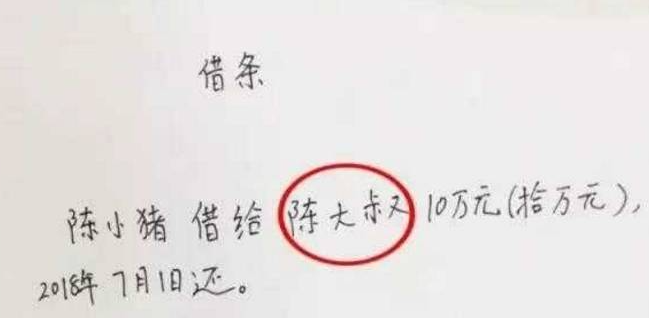 借条
陈小猪 借给 陈大叔 10万元(拾万元),
2018年7月1日还。